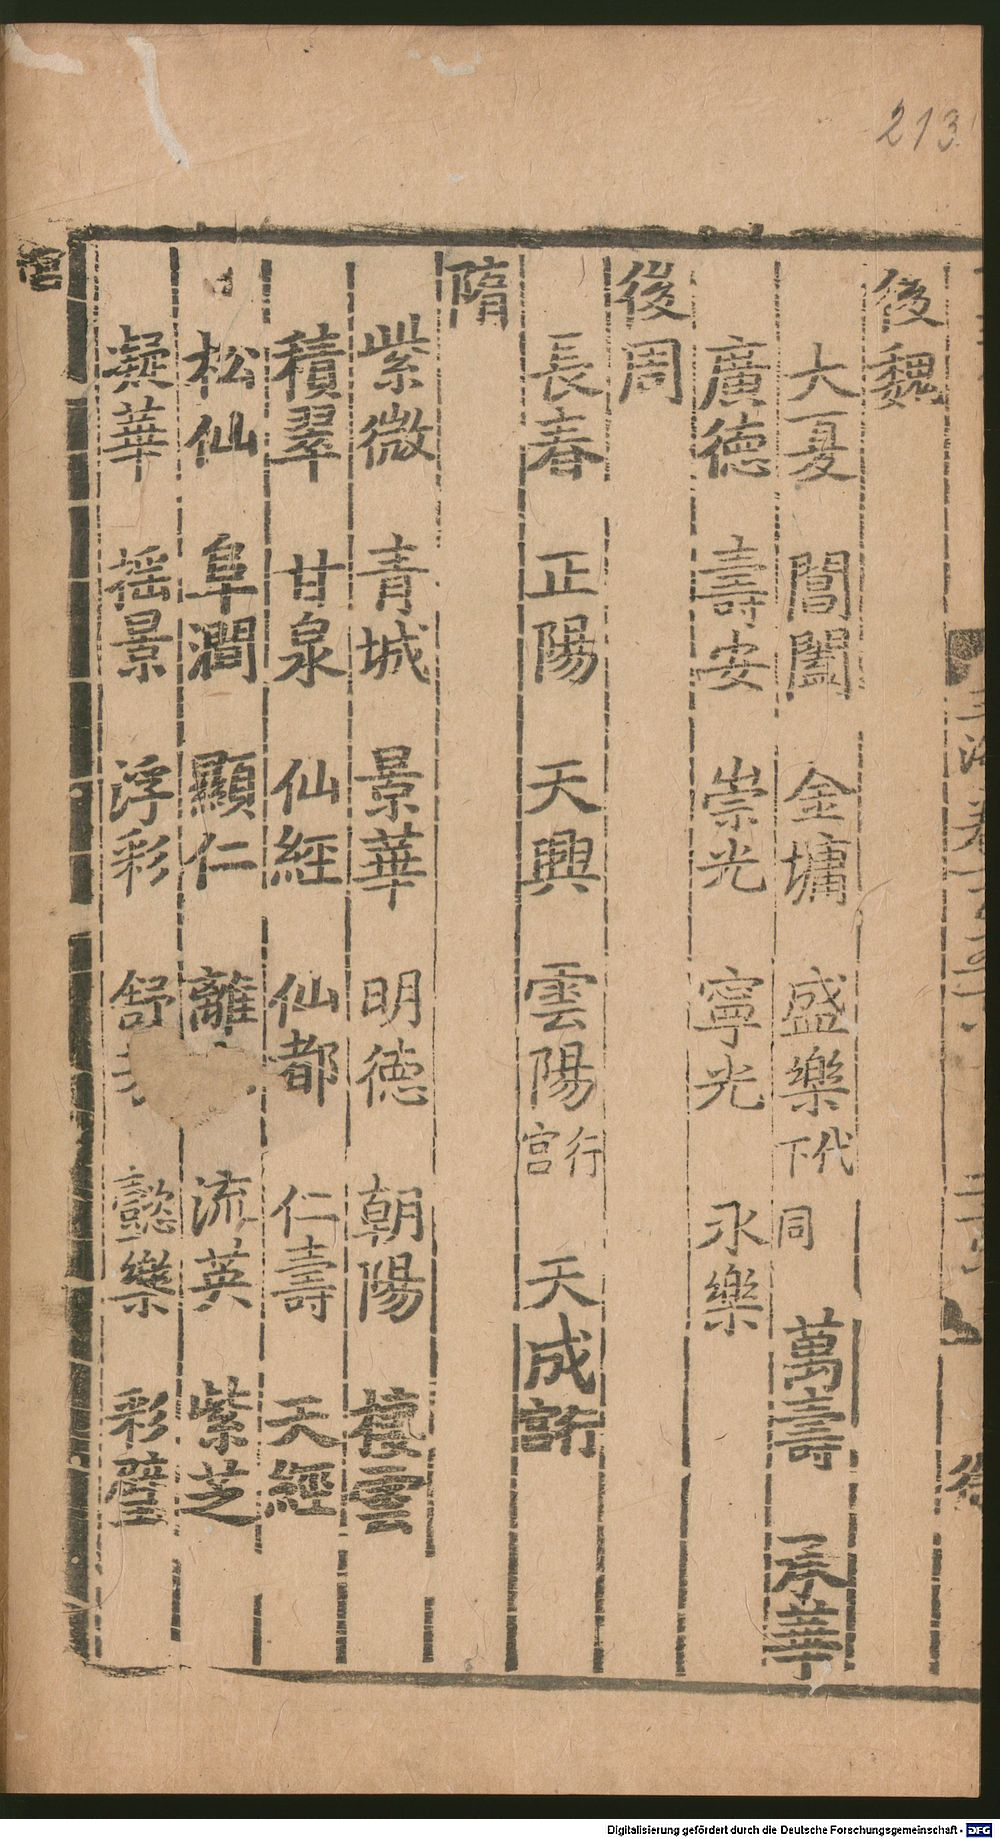 213
後魏
大夏 閶闔 金墉 盛樂代下同 萬壽 承華
廣德 壽安 崇光 寧光 永樂
後周
長春 正陽 天興 雲陽行宮 天成行宮
隋
紫微 青城 景華 明德 朝陽 棲雲
積翠 甘泉 仙經 仙都 仁壽 天經
松仙 阜澗 顯仁 離 流英 紫芝
凝華 搖景 浮彩 舒 懿樂 彩璧
宮
Digitalisierung gefördert durch die Deutsche Forschungsgemeinschaft - DFG